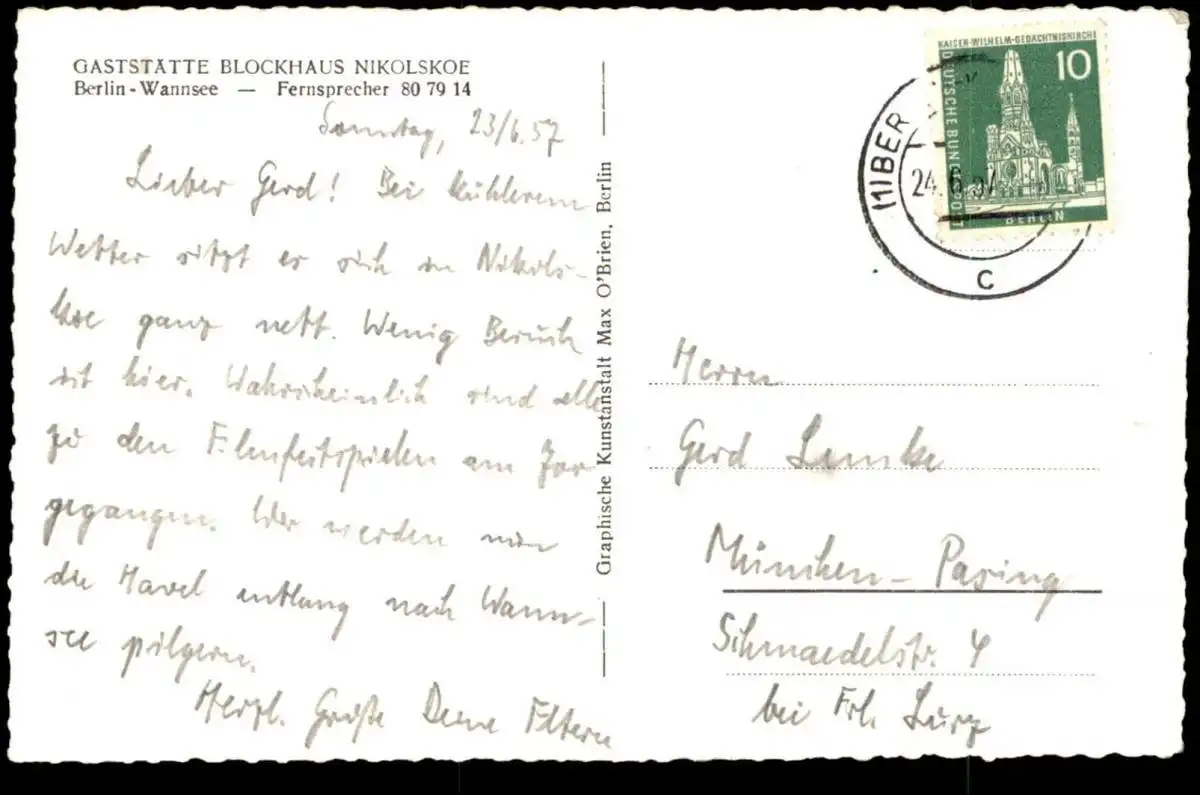 GASTSTÄTTE BLOCKHAUS NIKOLSKOE
Berlin-Wannsee — Fernsprecher 80 79 14
Sonntag, 23/6.57
Lieber Gerd! Bei kühlerem
Wetter sitzt es sich in Nikols-
koe ganz nett. Wenig Besuch
ist hier. Wahrscheinlich sind alle
zu den Filmfestspielen am Zoo
gegangen. Wir werden nun
die Havel entlang nach Wann-
see pilgern.
Herzl. Grüße Deine Eltern
Graphische Kunstanstalt Max O'Brien, Berlin
KAISER-WILHELM-GEDÄCHTNISKIRCHE
10
DEUTSCHE BUNDESPOST
BERLIN
(1)BER
24.6.57
C
Herrn
Gerd Lemke
München-Pasing
Schmaedelstr. 4
bei Frl. Lurz